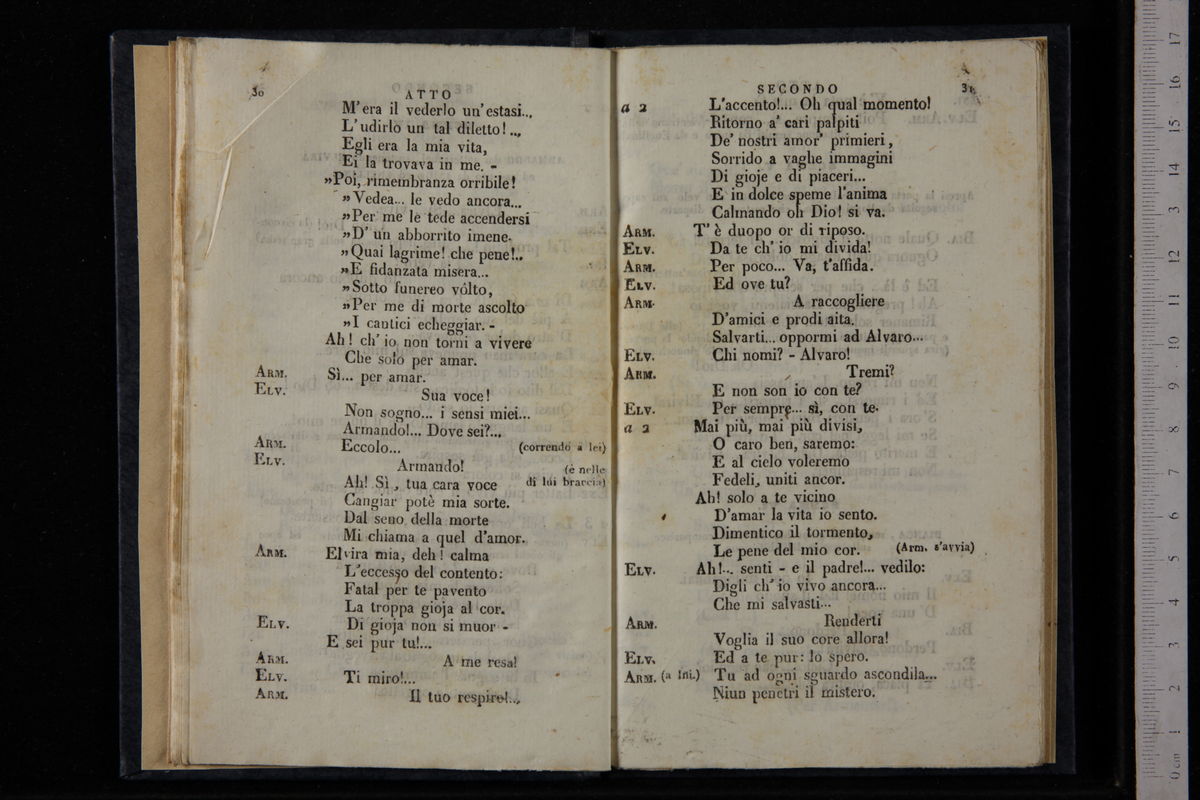 30
ATTO
M'era il vederlo un'estasi...
L'udirlo un tal diletto!...
Egli era la mia vita,
Ei la trovava in me. -
»Poi, rimembranza orribile!
»Vedea... le vedo ancora...
»Per me le tede accendersi
»D' un abborrito imene.
»Quai lagrime! che pene!..
»E fidanzata misera...
»Sotto funereo vólto,
»Per me di morte ascolto
»I cantici echeggiar. -
Ah! ch' io non torni a vivere
Che solo per amar.
ARM. Sì... per amar.
ELV. Sua voce!
Non sogno... i sensi miei...
Armando!... Dove sei?...
ARM. Eccolo... (correndo a lei)
ELV. Armando! (è nelle
Ah! Sì, tua cara voce di lui braccia)
Cangiar potè mia sorte.
Dal seno della morte
Mi chiama a quel d'amor.
ARM. Elvira mia, deh! calma
L'eccesso del contento:
Fatal per te pavento
La troppa gioja al cor.
ELV. Di gioja non si muor -
E sei pur tu!...
ARM. A me resa!
ELV. Ti miro!...
ARM. Il tuo respiro!...
SECONDO
31
a 2 L'accento!... Oh qual momento!
Ritorno a' cari palpiti
De' nostri amor' primieri,
Sorrido a vaghe immagini
Di gioje e di piaceri...
E in dolce speme l'anima
Calmando oh Dio! si va.
ARM. T' è duopo or di riposo.
ELV. Da te ch' io mi divida!
ARM. Per poco... Va, t'affida.
ELV. Ed ove tu?
ARM. A raccogliere
D'amici e prodi aita.
Salvarti... oppormi ad Alvaro...
ELV. Chi nomi? - Alvaro!
ARM. Tremi?
E non son io con te?
ELV. Per sempre... sì, con te.
a 2 Mai più, mai più divisi,
O caro ben, saremo:
E al cielo voleremo
Fedeli, uniti ancor.
Ah! solo a te vicino
D'amar la vita io sento.
Dimentico il tormento,
Le pene del mio cor. (Arm. s'avvia)
ELV. Ah!... senti - e il padre!... vedilo:
Digli ch' io vivo ancora...
Che mi salvasti...
ARM. Renderti
Voglia il suo core allora!
ELV. Ed a te pur: lo spero.
ARM. (a Ini.) Tu ad ogni sguardo ascondila...
Niun penetri il mistero.